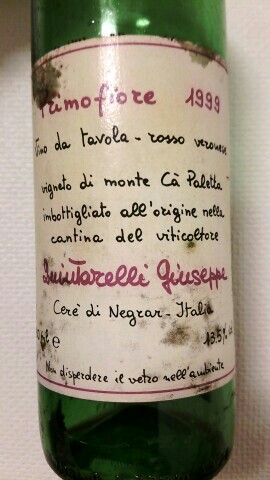 Primofiore 1999
Vino da tavola - rosso veronese
vigneto di monte Cà Paletta
imbottigliato all'origine nella
cantina del viticoltore
Quintarelli Giuseppe
Cerè di Negrar - Italia
13.5%
Non disperdere il vetro nell'ambiente